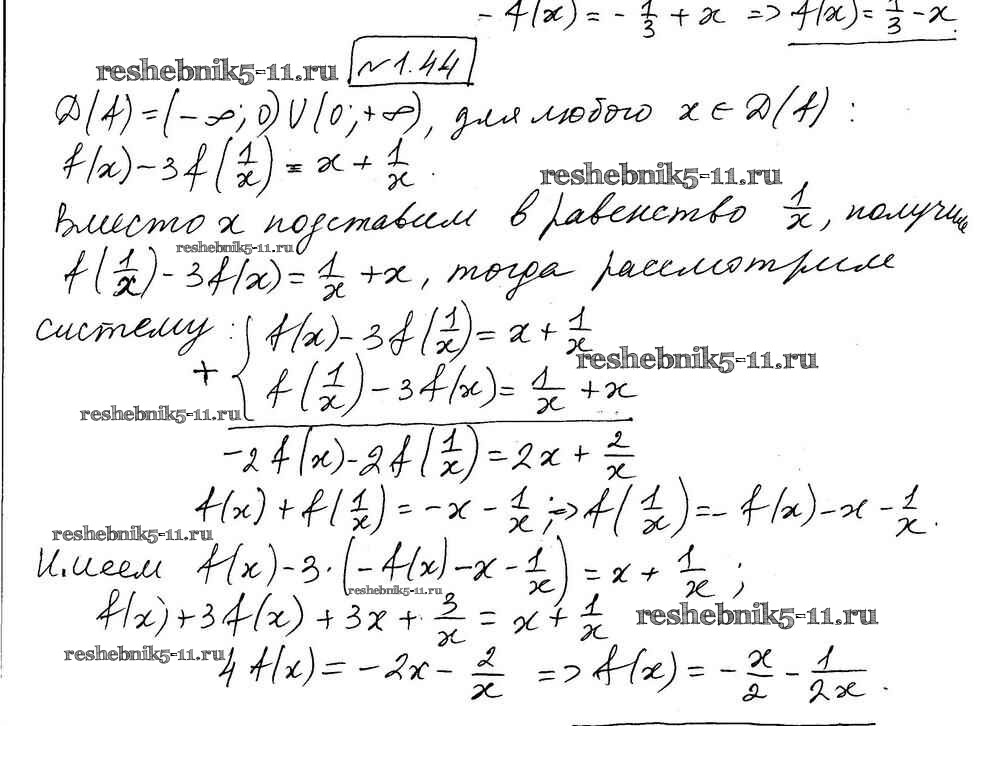 - f(x) = - 1/3 + x => f(x) = 1/3 - x.
reshebnik5-11.ru №1.44
D(f) = (-∞; 0) U (0; +∞), для любого x ∈ D(f) :
f(x) - 3f(1/x) = x + 1/x.
reshebnik5-11.ru
Вместо x подставим в равенство 1/x, получим
reshebnik5-11.ru
f(1/x) - 3f(x) = 1/x + x, тогда рассмотрим
систему: { f(x) - 3f(1/x) = x + 1/x
reshebnik5-11.ru
+ { f(1/x) - 3f(x) = 1/x + x
reshebnik5-11.ru
-2f(x) - 2f(1/x) = 2x + 2/x
f(x) + f(1/x) = -x - 1/x; => f(1/x) = - f(x) - x - 1/x.
reshebnik5-11.ru
Имеем f(x) - 3·(-f(x) - x - 1/x) = x + 1/x;
reshebnik5-11.ru
f(x) + 3f(x) + 3x + 3/x = x + 1/x reshebnik5-11.ru
reshebnik5-11.ru
4f(x) = -2x - 2/x => f(x) = - x/2 - 1/2x.